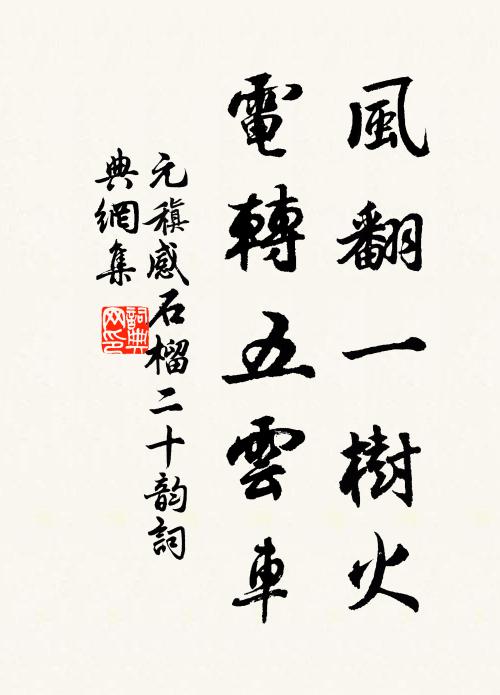 風翻一樹火
電轉五雲車
元稹感石榴二十韵詞
典網集
詞典
网印